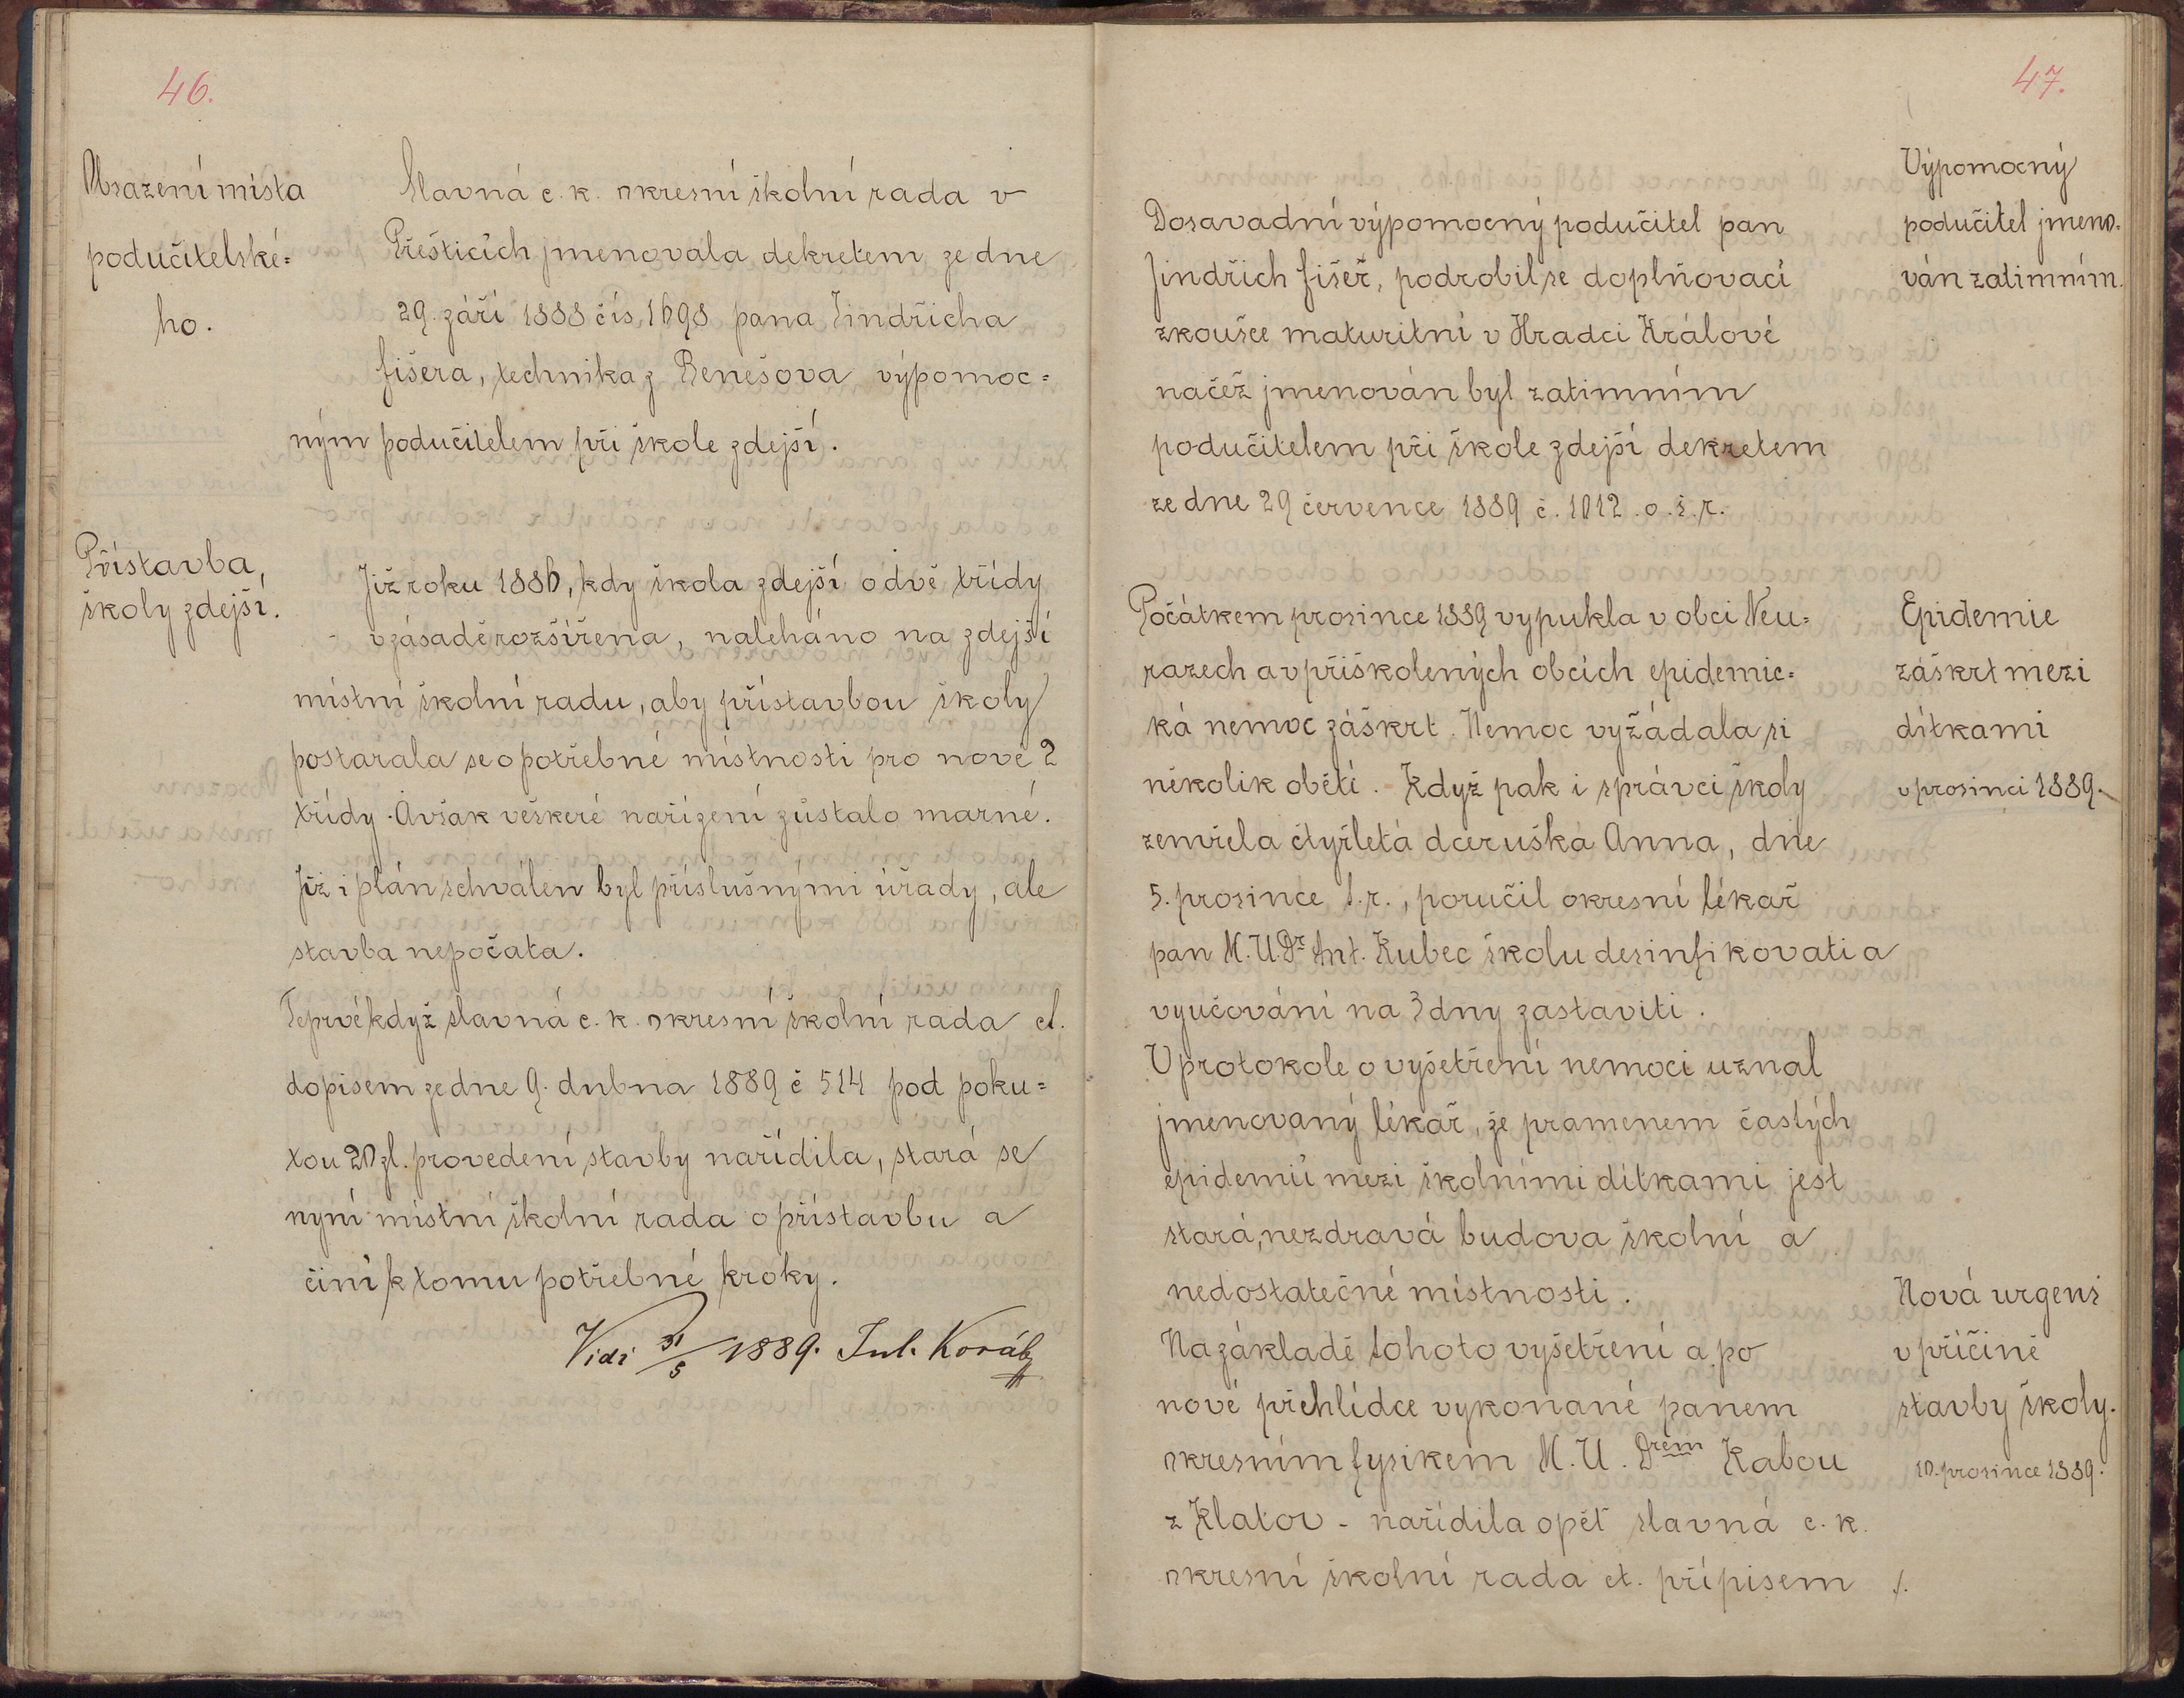 46.
Obsazení místa
podučitelské=
ho.
Slavná c. k. okresní školní rada v
Přešticích jmenovala dekretem ze dne
29. září 1888 čís, 1698 pana Jindřicha
Fišera, technika z Benešova výpomoc=
ným podučitelem při škole zdejší.
Přístavba,
školy zdejší.
Již roku 1886, kdy škola zdejší o dvě třídy
v zásadě rozšířena, naleháno na zdejší
místní školní radu, aby přístavbou školy
postarala se o potřebné místnosti pro nové 2
třídy. Avšak veškeré nařízení zůstalo marné.
Již i plán schválen byl příslušnými úřady, ale
stavba nepočata.
Teprvé když slavná c. k. okresní školní rada ct.
dopisem ze dne 9. dubna 1889 č 514 pod poku=
tou 20 zl. provedení stavby nařídila, stará se
nyní místní školní rada o přístavbu a
činí k tomu potřebné kroky.
Vidi 31/5 1889. Jul. Koráb
47.
Výpomocný
podučitel jmeno=
ván zatimním.
Dosavadní výpomocný podučitel pan
Jindřich Fišer, podrobil se doplňovací
zkoušce maturitní v Hradci Králové
načež jmenován byl zatimním
podučitelem při škole zdejší dekretem
ze dne 29 července 1889 č. 1012. o. š. r.
Epidemie
záškrt mezi
dítkami
v prosinci 1889.
Počátkem prosince 1889 vypukla v obci Neu=
razech a v přiškolených obcích epidemic=
ká nemoc záškrt. Nemoc vyžádala si
několik obětí. Když pak i správci školy
zemřela čtyřletá dceruška Anna, dne
5. prosince t. r., poručil okresní lékař
pan M. U. Dr Ant. Kubec školu desinfikovati a
vyučování na 3 dny zastaviti.
V protokole o vyšetření nemoci uznal
jmenovaný lékař, že pramenem častých
epidemií mezi školními dítkami jest
stará, nezdravá budova školní a
nedostatečné místnosti.
Nová urgens
v příčině
stavby školy.
10. prosince 1889.
Na základě tohoto vyšetření a po
nové přehlídce vykonané panem
okresním fysikem M. U. Drem Kabou
z Klatov - nařídila opět slavná c. k.
okresní školní rada ct. přípisem ./.